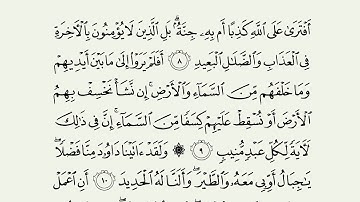 أَفْتَرَىٰ عَلَى ٱللَّهِ كَذِبًا أَم بِهِۦ جِنَّةٌۢ ۗ بَلِ ٱلَّذِينَ لَا يُؤْمِنُونَ بِٱلْـَٔاخِرَةِ
فِى ٱلْعَذَابِ وَٱلضَّلَٰلِ ٱلْبَعِيدِ ٨ أَفَلَمْ يَرَوْا۟ إِلَىٰ مَا بَيْنَ أَيْدِيهِمْ
وَمَا خَلْفَهُم مِّنَ ٱلسَّمَآءِ وَٱلْأَرْضِ ۚ إِن نَّشَأْ نَخْسِفْ بِهِمُ
ٱلْأَرْضَ أَوْ نُسْقِطْ عَلَيْهِمْ كِسَفًا مِّنَ ٱلسَّمَآءِ ۚ إِنَّ فِى ذَٰلِكَ
لَـَٔايَةً لِّكُلِّ عَبْدٍ مُّنِيبٍ ٩ ۞ وَلَقَدْ ءَاتَيْنَا دَاوُۥدَ مِنَّا فَضْلًا ۖ
يَٰجِبَالُ أَوِّبِى مَعَهُۥ وَٱلطَّيْرَ ۖ وَأَلَنَّا لَهُ ٱلْحَدِيدَ ١٠ أَنِ ٱعْمَلْ